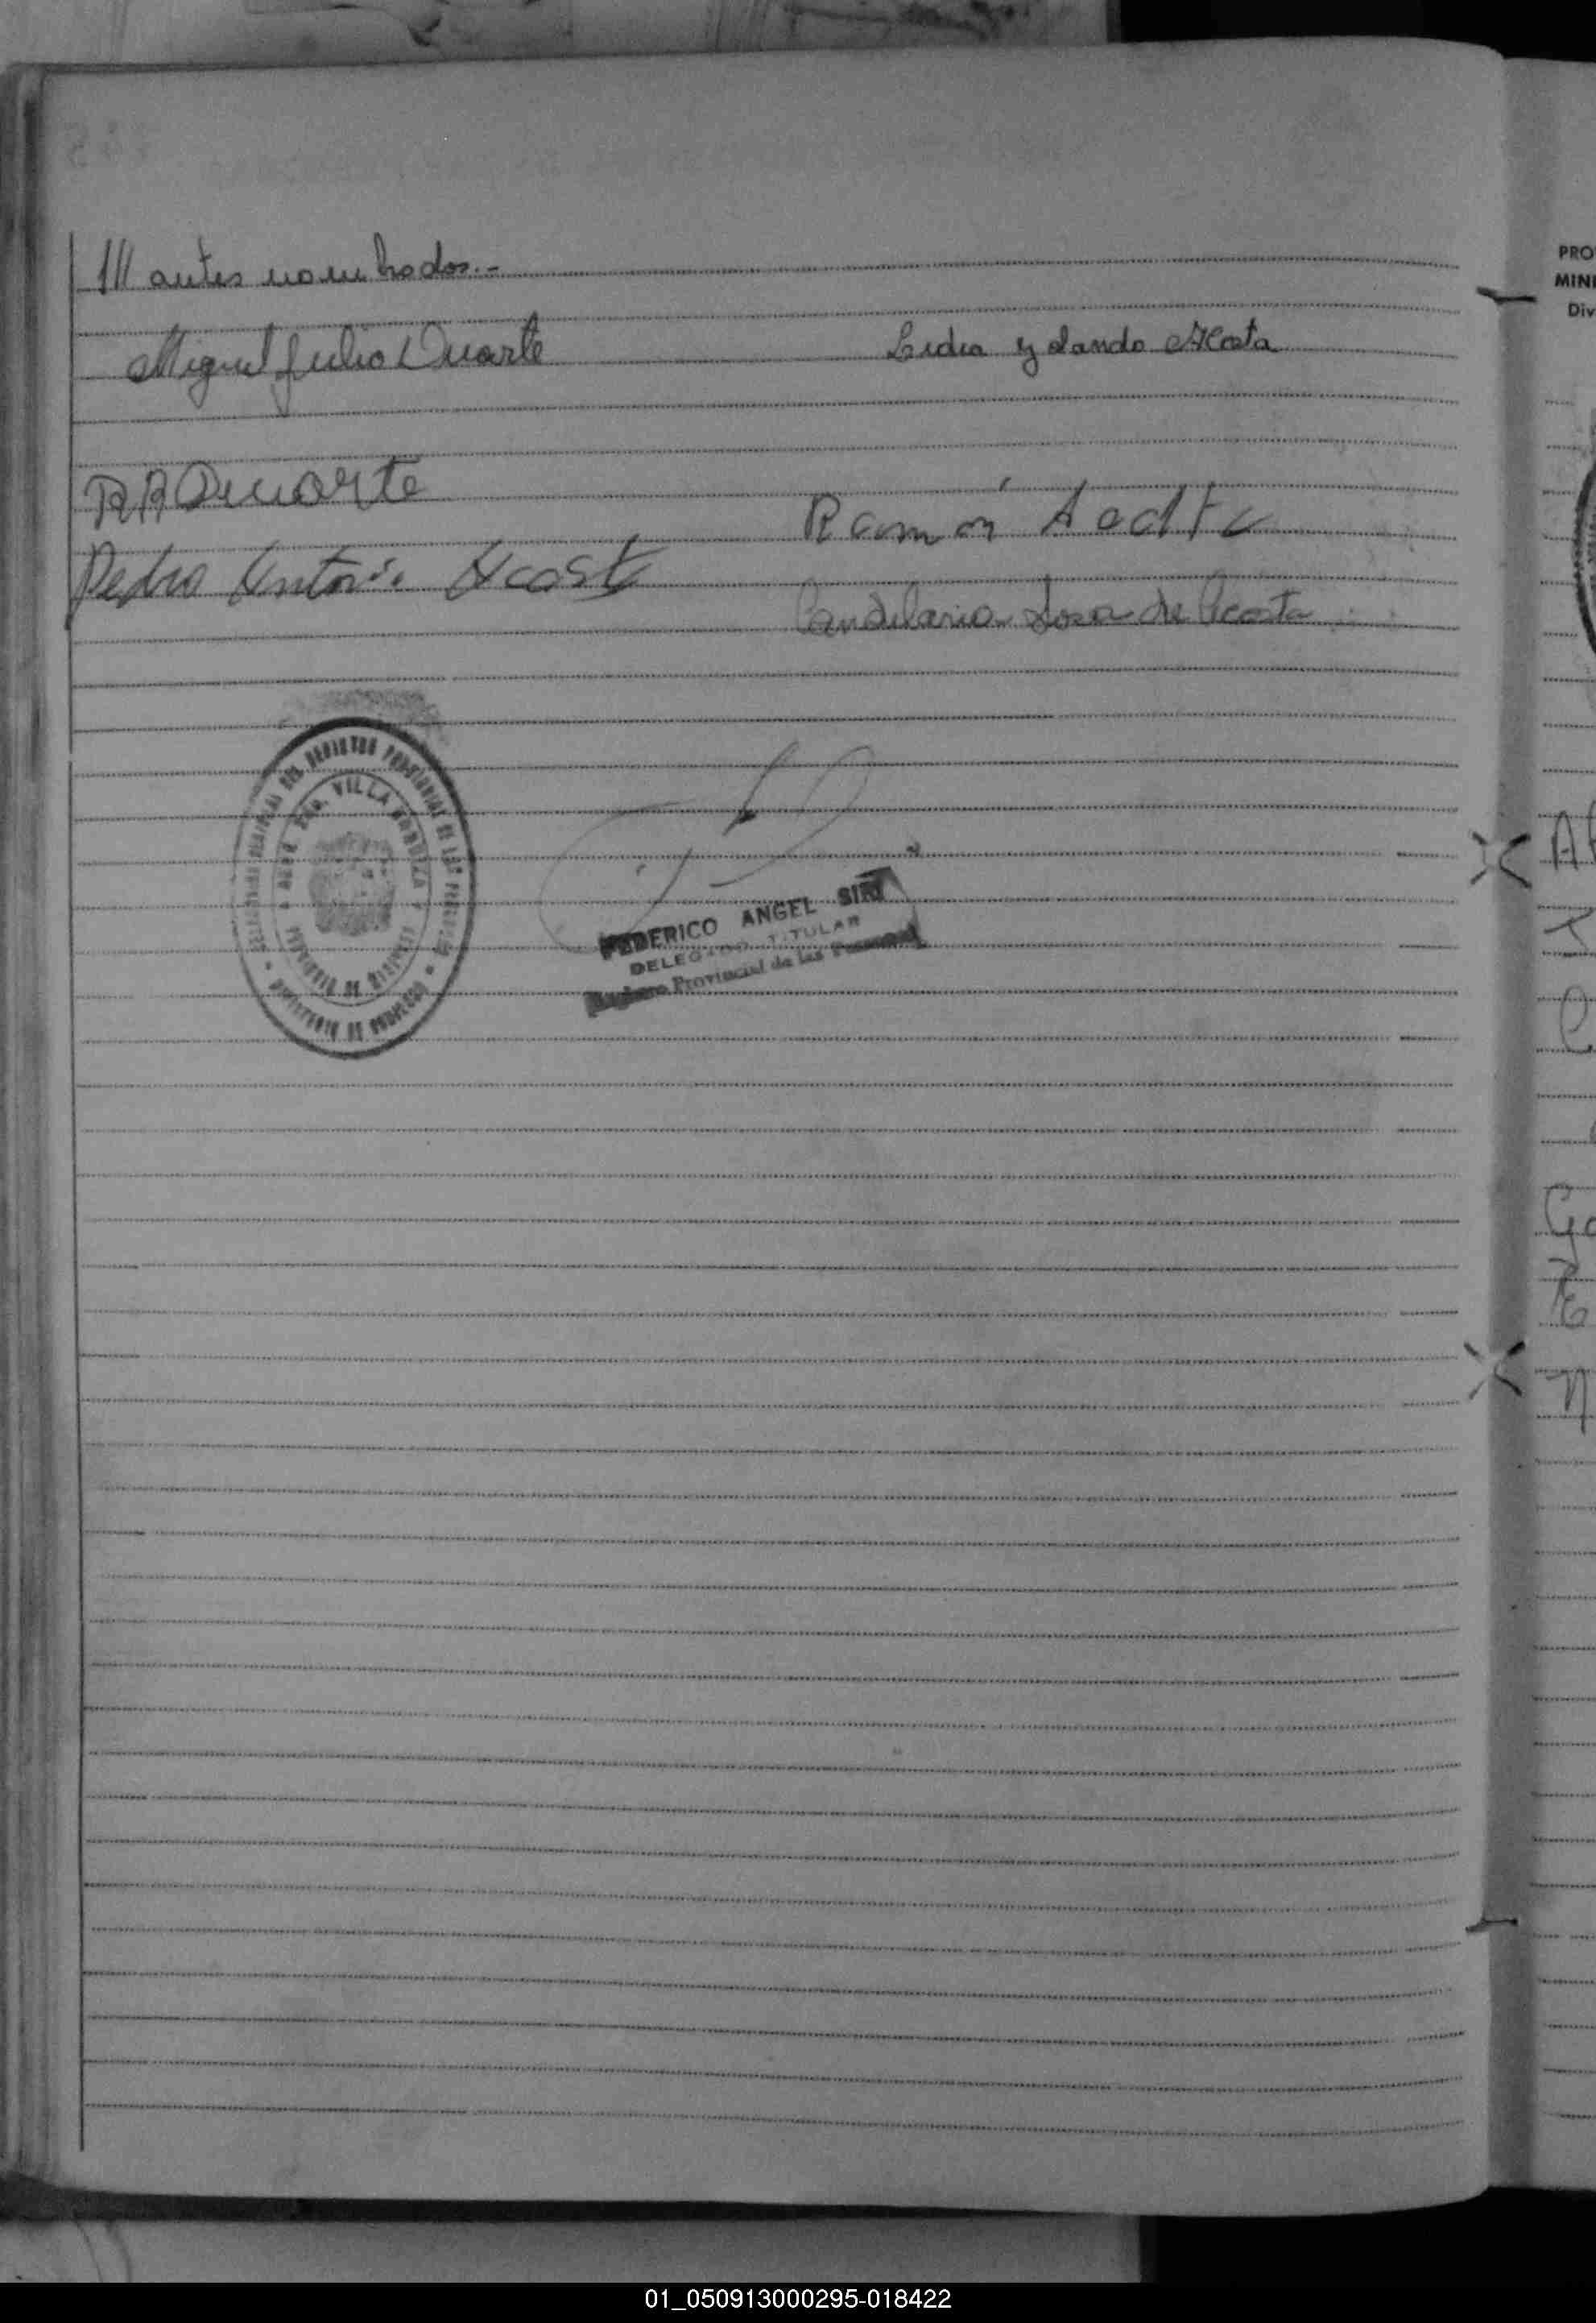 /// antes nombrados.-
Miguel Julio Duarte
Lidia yolanda Acosta
RADuarte
Ramón Acosta
Pedro Antonio Acosta
Candelaria Sosa de Acosta
DEL REGISTRO PROVINCIAL DE LAS PERSONAS
VILLA
PROVINCIA DE MISIONES
MINISTERIO DE GOBIERNO
FEDERICO ANGEL SIRI
DELEGADO TITULAR
Registro Provincial de las Personas
PRO
MINI
Div
01_050913000295-018422